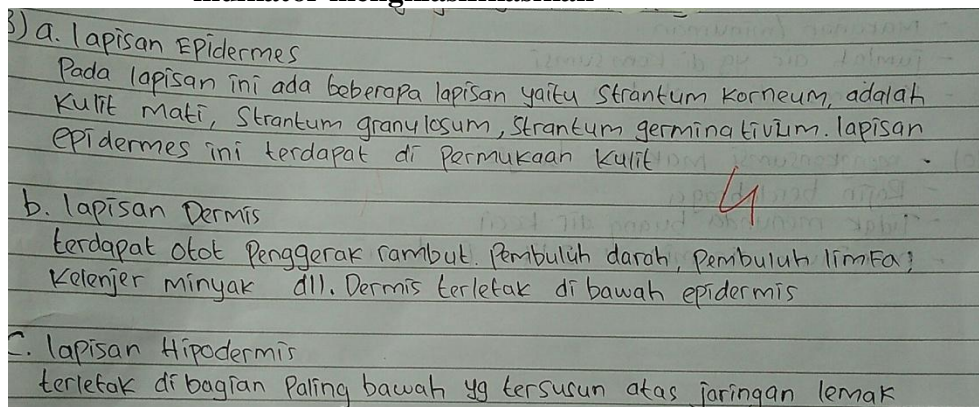 3) a. lapisan Epidermes
Pada lapisan ini ada beberapa lapisan yaitu Strantum Korneum, adalah
Kulit Mati, Strantum granulosum, Strantum germinativium. lapisan
epidermes ini terdapat di Permukaan Kulit
4
b. lapisan Dermis
terdapat otot Penggerak rambut. Pembuluh darah, Pembuluh limfa,
Kelenjer minyak dll. Dermis terletak di bawah epidermis
C. lapisan Hipodermis
terletak di bagian Paling bawah yg tersusun atas jaringan lemak